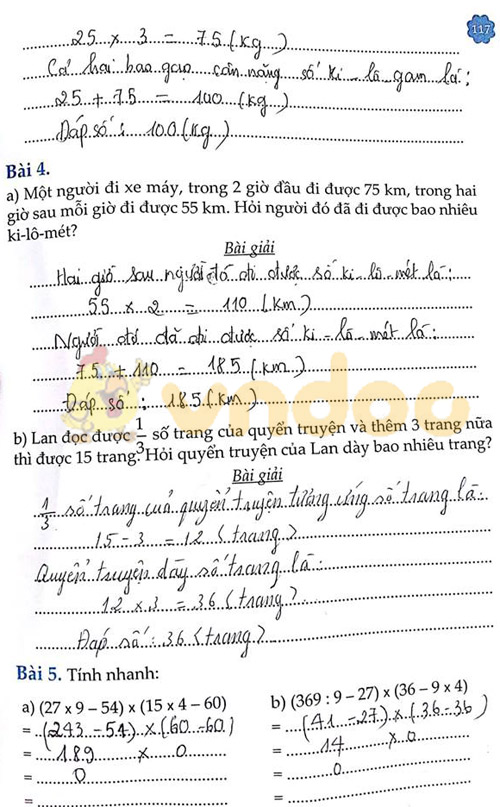 117
25 x 3 = 75 (kg)
Cả hai bao gạo cân nặng số ki - lô gam là:
25 + 75 = 100 (kg)
Đáp số : 100 (kg)
Bài 4.
a) Một người đi xe máy, trong 2 giờ đầu đi được 75 km, trong hai
giờ sau mỗi giờ đi được 55 km. Hỏi người đó đã đi được bao nhiêu
ki-lô-mét?
Bài giải
Hai giờ sau người đó đi được số ki - lô - mét là:
55 x 2 = 110 (km)
Người đó đã đi được số ki - lô - mét là:
75 + 110 = 185 (km)
Đáp số : 185 (km)
vndoc
b) Lan đọc được 1/3 số trang của quyển truyện và thêm 3 trang nữa
thì được 15 trang. Hỏi quyển truyện của Lan dày bao nhiêu trang?
Bài giải
1/3 số trang của quyển truyện tương ứng số trang là:
15 - 3 = 12 (trang)
Quyển truyện dày số trang là:
12 x 3 = 36 (trang)
Đáp số : 36 (trang)
Bài 5. Tính nhanh:
a) (27 x 9 – 54) x (15 x 4 – 60)
= (243 - 54) x (60 - 60)
= 189 x 0
= 0
=
b) (369 : 9 – 27) x (36 – 9 x 4)
= (41 - 27) x (36 - 36)
= 14 x 0
= 0
=